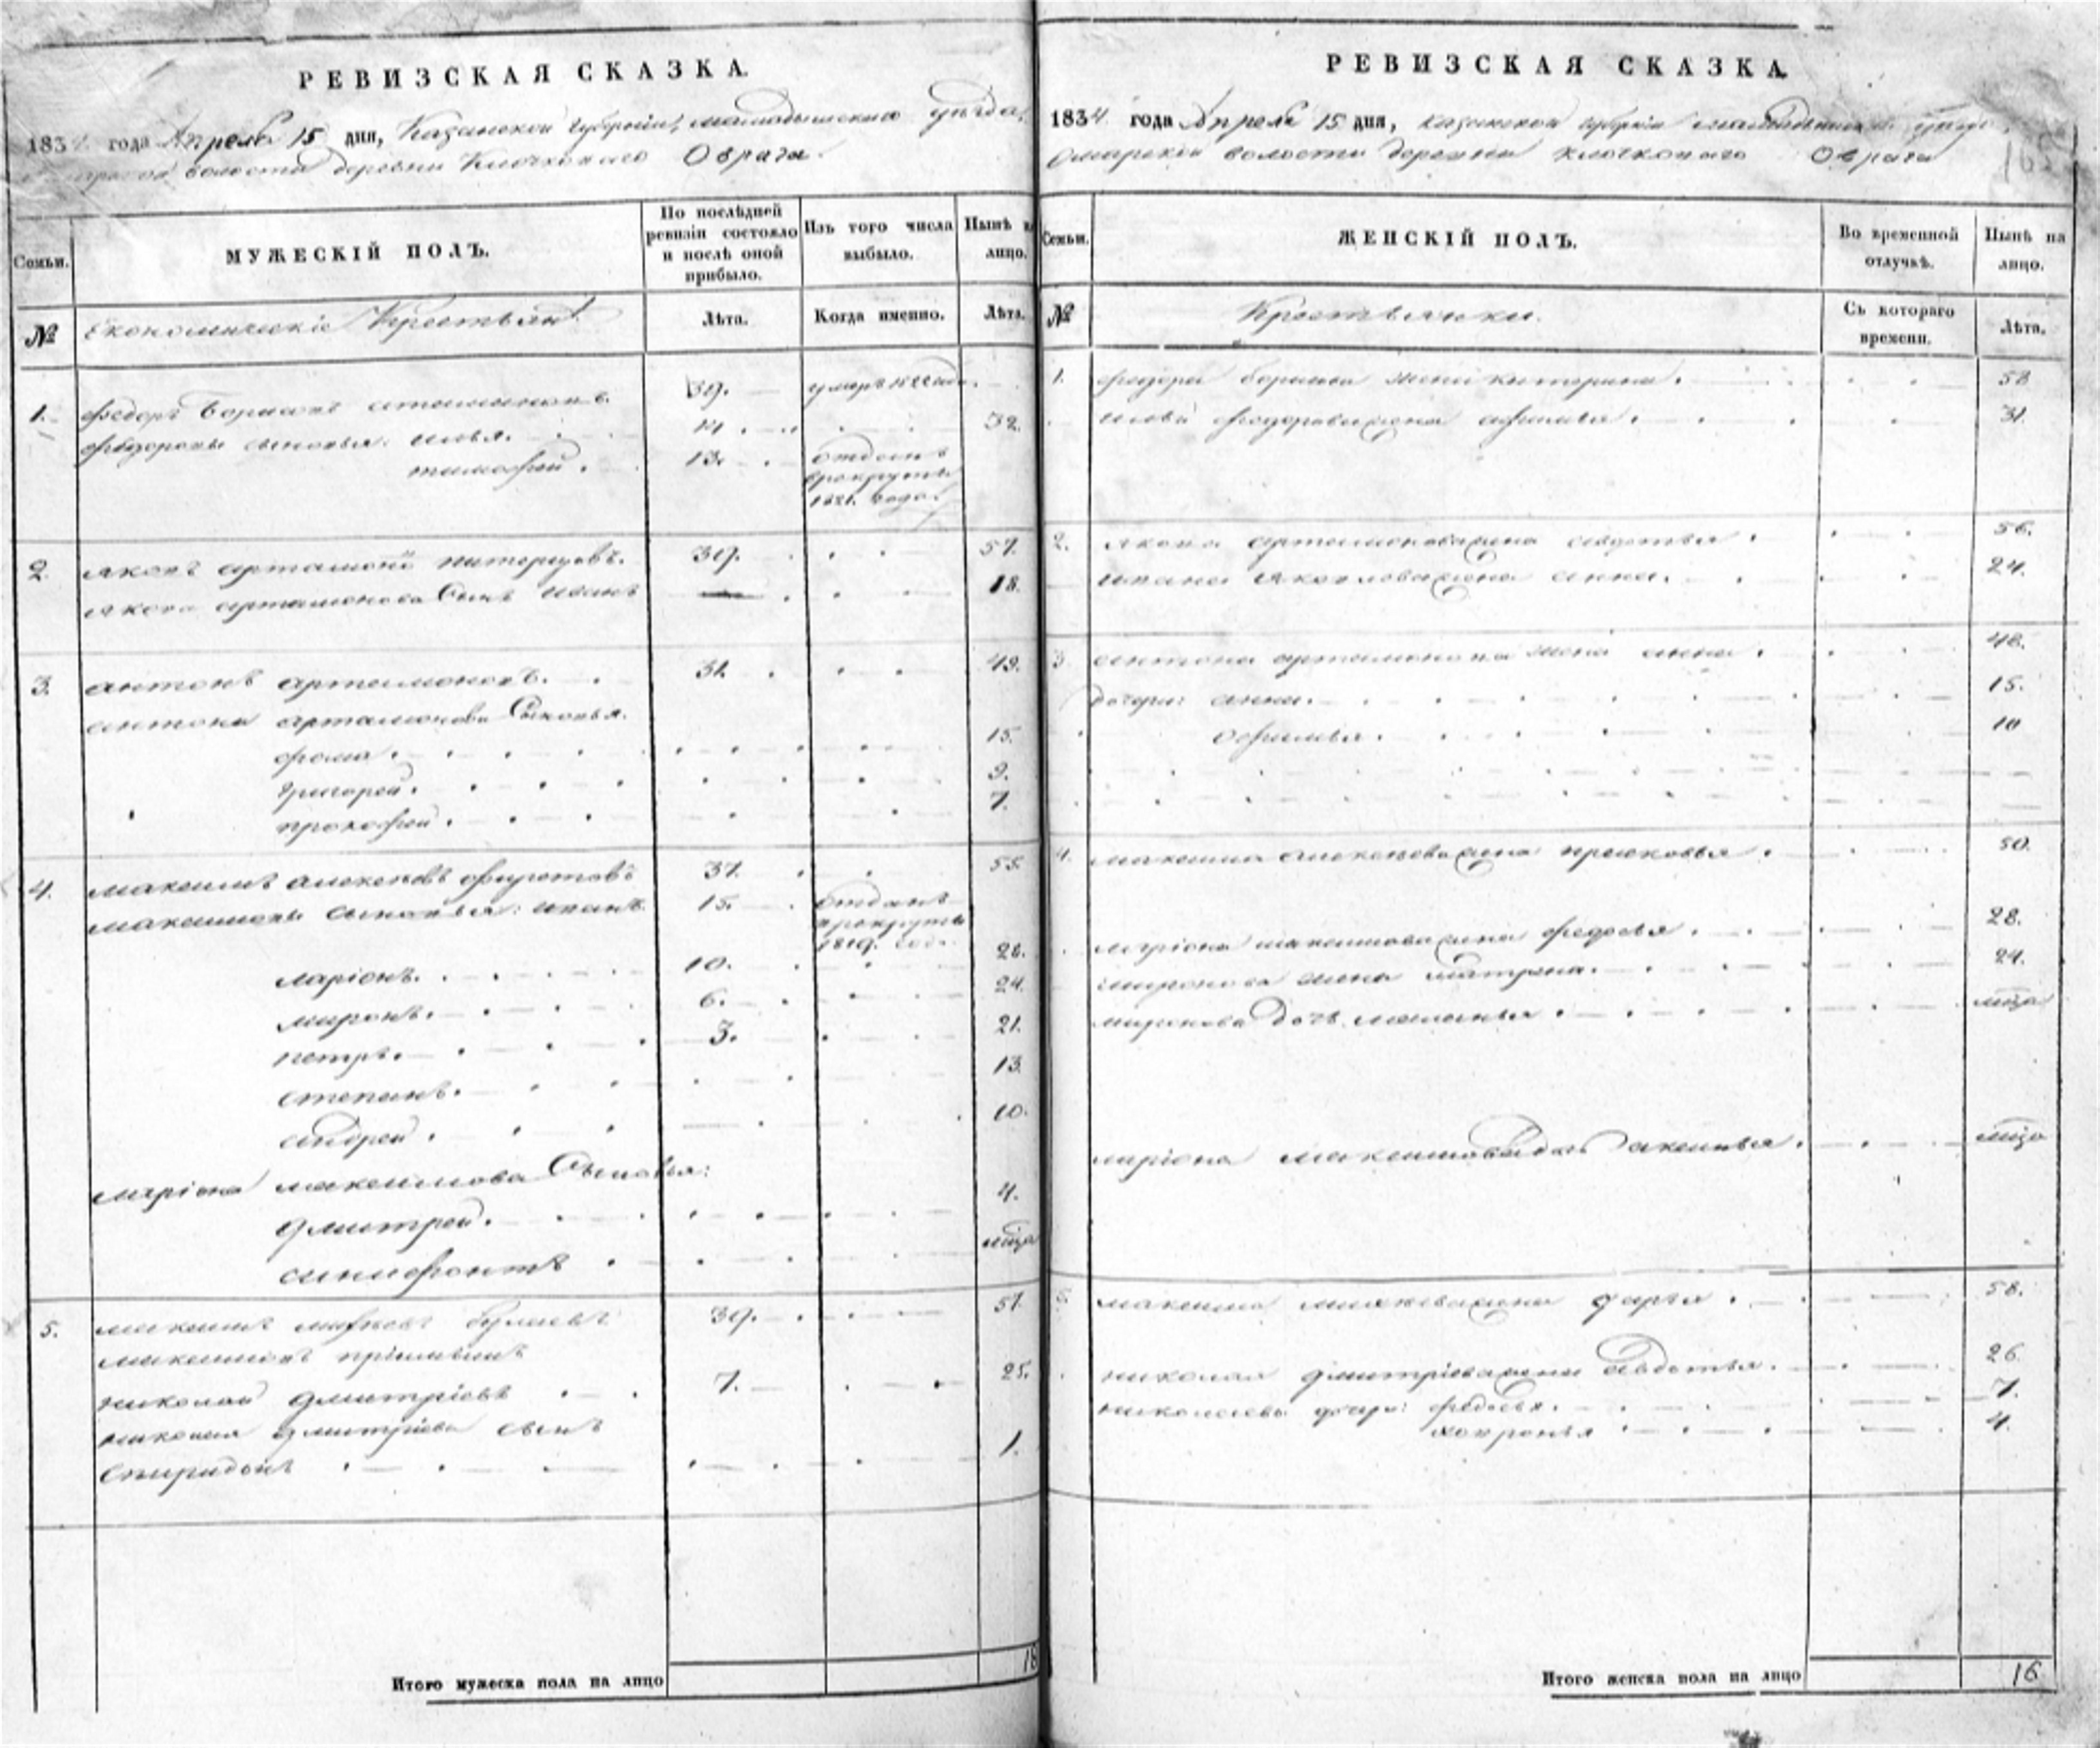 РЕВИЗСКАЯ СКАЗКА.
1834 года Апреля 15 дня, Казанской губернии, мамадышскаго уезда,
волости деревни Ключковаго Оврага.
Семьи.
МУЖЕСКІЙ ПОЛЪ.
По послѣдней ревизіи состояло и послѣ оной прибыло.
Изъ того числа выбыло.
Нынѣ на лицо.
№
Економическіе Крестьяне
Лѣта.
Когда именно.
Лѣта.
1. федоръ Борисовъ 39. умеръ 1822 года.
федоровы сыновья: илья. 14. 32.
тимофей. 13. отданъ в рекруты 1821. года.
2. яковъ артамоновъ 39. 57.
якова артамонова Сынъ иванъ — 18.
3. антонъ артамоновъ. 31. 49.
антона артамонова Сыновья.
фома. 15.
григорей. 9.
прокофей. 7.
4. максимъ алексеевъ 37. 55.
максимовы сыновья: иванъ 15. отданъ в рекруты 1819. года
ларіонъ. 10. 28.
миронъ. 6. 24.
петръ. 3. 21.
степанъ. 13.
андрей. 10.
ларіона максимова Сыновья:
дмитрей. 4.
ксинофонтъ
5. максимъ 39. 57.
максимовъ пріимышъ
николай дмитріевъ 7. 25.
николая дмитріева сынъ
Спиридонъ 1.
Итого мужеска пола на лицо 18
РЕВИЗСКАЯ СКАЗКА.
1834 года Апреля 15 дня, казанской губерніи мамадышскаго уезда,
Омарской волости деревни ключковаго Оврага
Семьи.
ЖЕНСКІЙ ПОЛЪ.
Во временной отлучкѣ.
Нынѣ на лицо.
№
Крестьянки.
Съ котораго времени.
Лѣта.
1. федора борисова жена катерина. 58
ильи федорова жена афимья. 31.
2. якова артамонова жена авдотья. 56.
ивана яковлева жена анна. 24.
3 антона артамонова жена анна. 48.
дочери: анна. 15.
офимья. 10
4. максима алексеева жена прасковья. 50.
ларіона максимова жена федосья. 28.
миронова жена матрона. 24.
миронова дочь меланья.
ларіона максимова дочь аксинья.
5. максима жена дарья. 58.
николая дмитріева жена авдотья. 26.
николаевы дочери: федосья. 7.
ховронья 4.
Итого женска пола на лицо 16